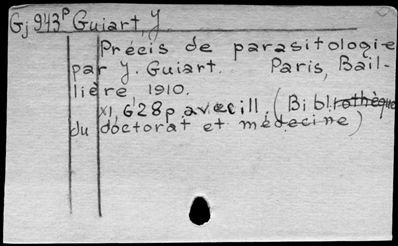 Gj 943ᵖ Guiart, J.
Précis de parasitologie
par J. Guiart. Paris, Bail-
lière 1910.
XI, 628 p. avec ill. (Bibliothèque
du doctorat et médecine)